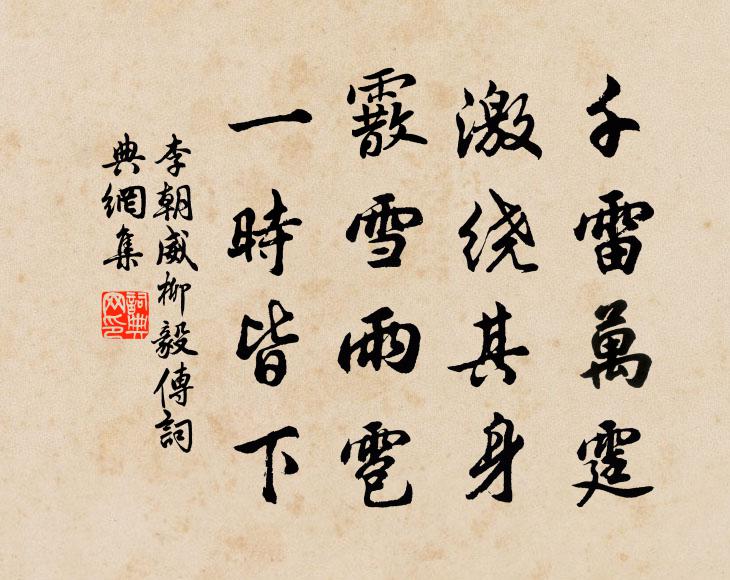 千雷萬霆
激绕其身
霰雪雨雹
一時皆下
李朝威柳毅傳詞
典網集
詞典网印